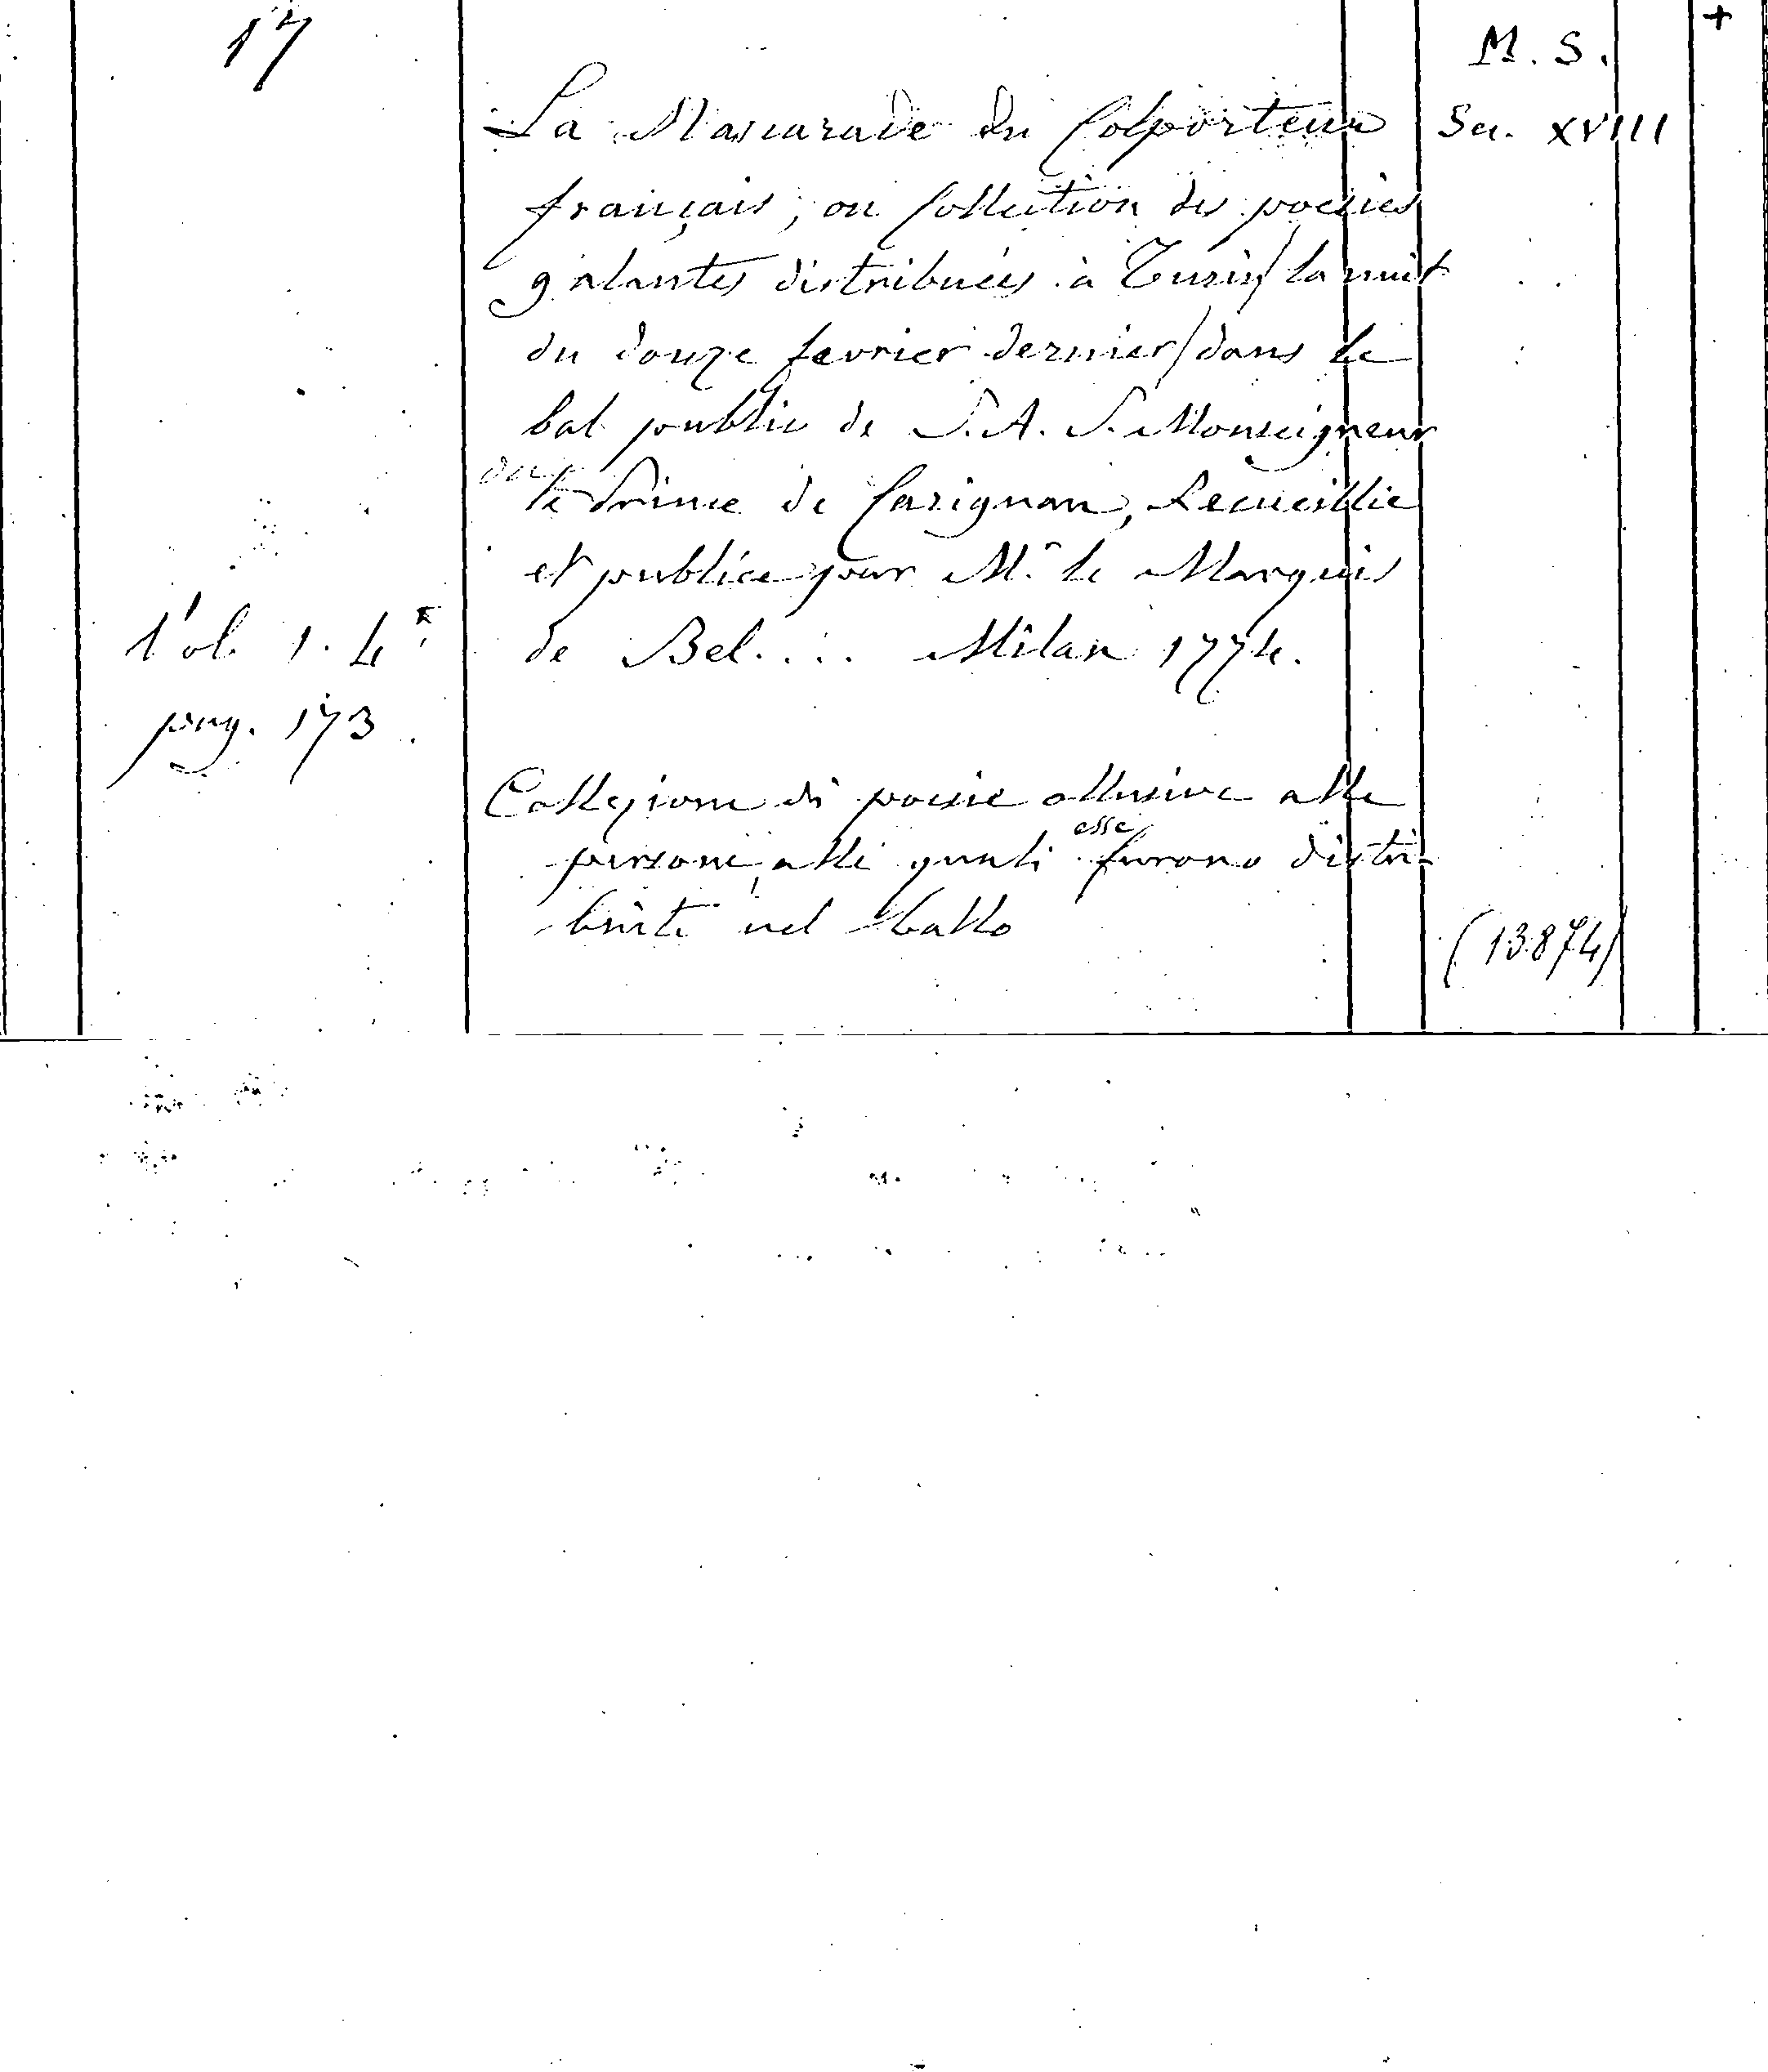 17
M. S.
+
La Mascarade du Colporteur
Sec. XVIII
français, ou Collection des poesies
galantes distribuées à Turin/ la nuit
du douze fevrier dernier/ dans le
bal public de S. A. S. Monseigneur
le Prince de Carignan, Recueillie
et publiée par Mr. le Marquis
Vol. 1. 4°
de Bel.... Milan 1774.
pag. 173.
Collezione di poesie allusive alle
esse
persone, alle quali furono distri-
buite nel ballo
(13874)